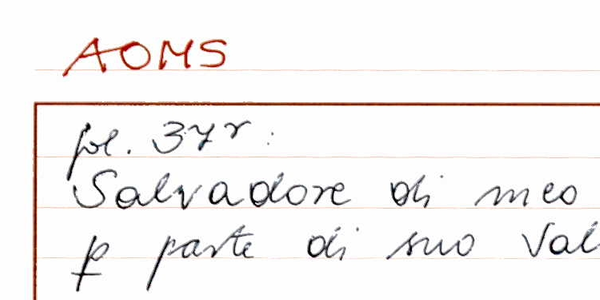 AOMS
fol. 37r:
Salvadore di meo
ꝑ parte di suo Val